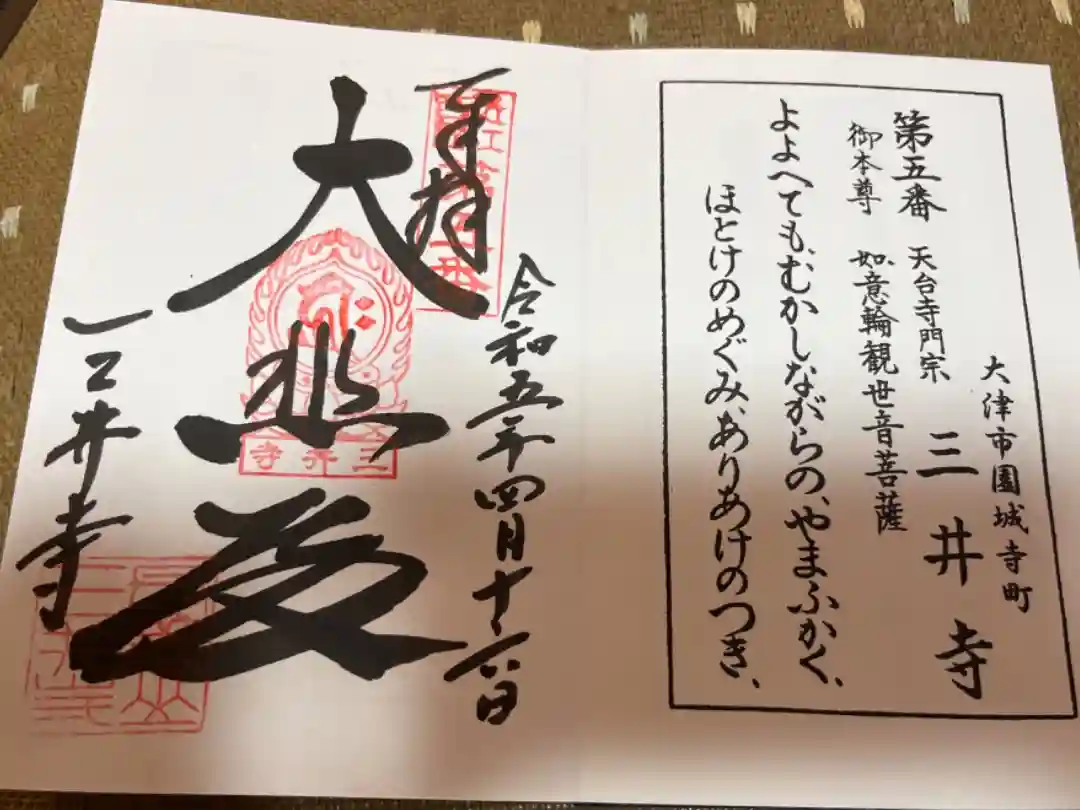 大津市園城寺町
第五番 天台寺門宗 三井寺
御本尊 如意輪観世音菩薩
よよへても、むかしながらの、やまふかく、
ほとけのめぐみ、ありあけのつき、
令和五年四月十六日
奉拝
大悲殿
三井寺
三井寺